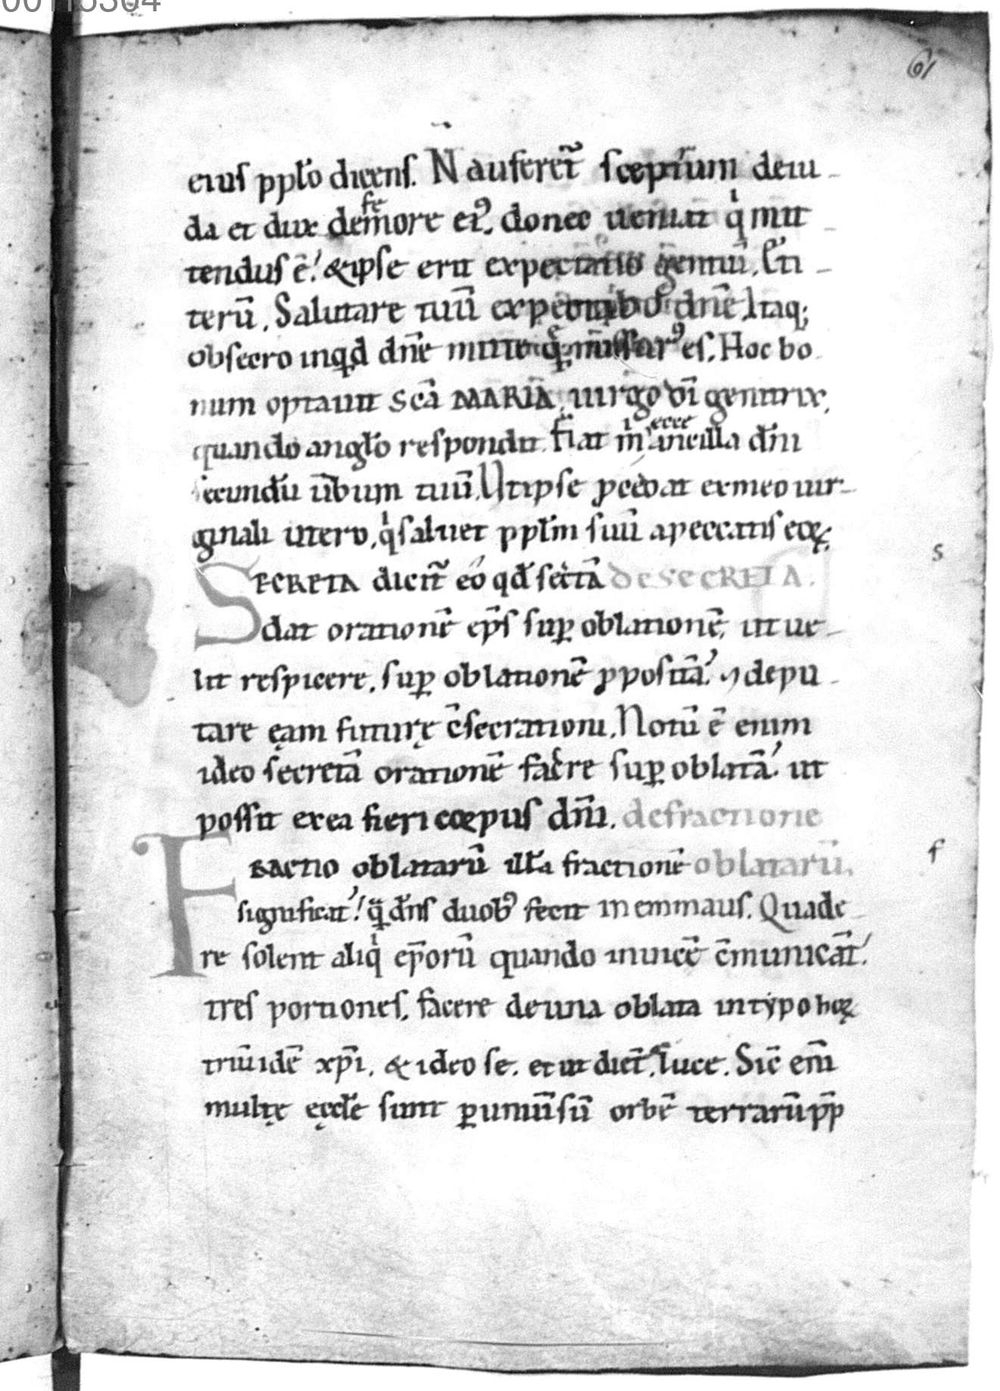 61
eius pplo dicens. N auferet̄ sceptrum de iu
da et dux de femore ei⁹, donec ueniat q̇ mit
tendus ē. & ipse erit expectatio gentiū. Et i
terū. Salutare tuū dn̄e. Itaq;
obsecro inquid dn̄e mitte es. Hoc bo
num optauit scā MARIA, uirgo dī genitrix,
quando anglo respondit. Fiat m̄ ecce ancilla dn̄i
secundū ūbum tuū. Ut ipse pcedat ex meo uir
ginali utero, q̇ saluet pplm̄ suū a peccatis eoꝝ.
SECRETA dicit̄ eo qd̄ secrēta DE SECRETA.
dat orationē ep̄s sup oblationē, ut ue
lit respicere, sup oblationē ppositā. ⁊ depu
tare ęam futurę c̄secrationi. Notū ē enim
ideo secretā orationē facere sup oblatā. ut
possit ex ea fieri corpus dn̄i. de fractione
FRACTIO oblatarū illa fractionē oblatarū.
significat. quā dn̄s duob⁹ fecit in emmaus. Qua de
re solent aliq̇ ep̄orū quando inuicē c̄municāt.
tres portiones, facere de una oblata in typo hoꝝ
triū idē xp̄i, & ideo se. et ut dicit luce. Sic eni̅
multę ęccłe sunt p uniūsū orbē terrarū pp̄
s
f